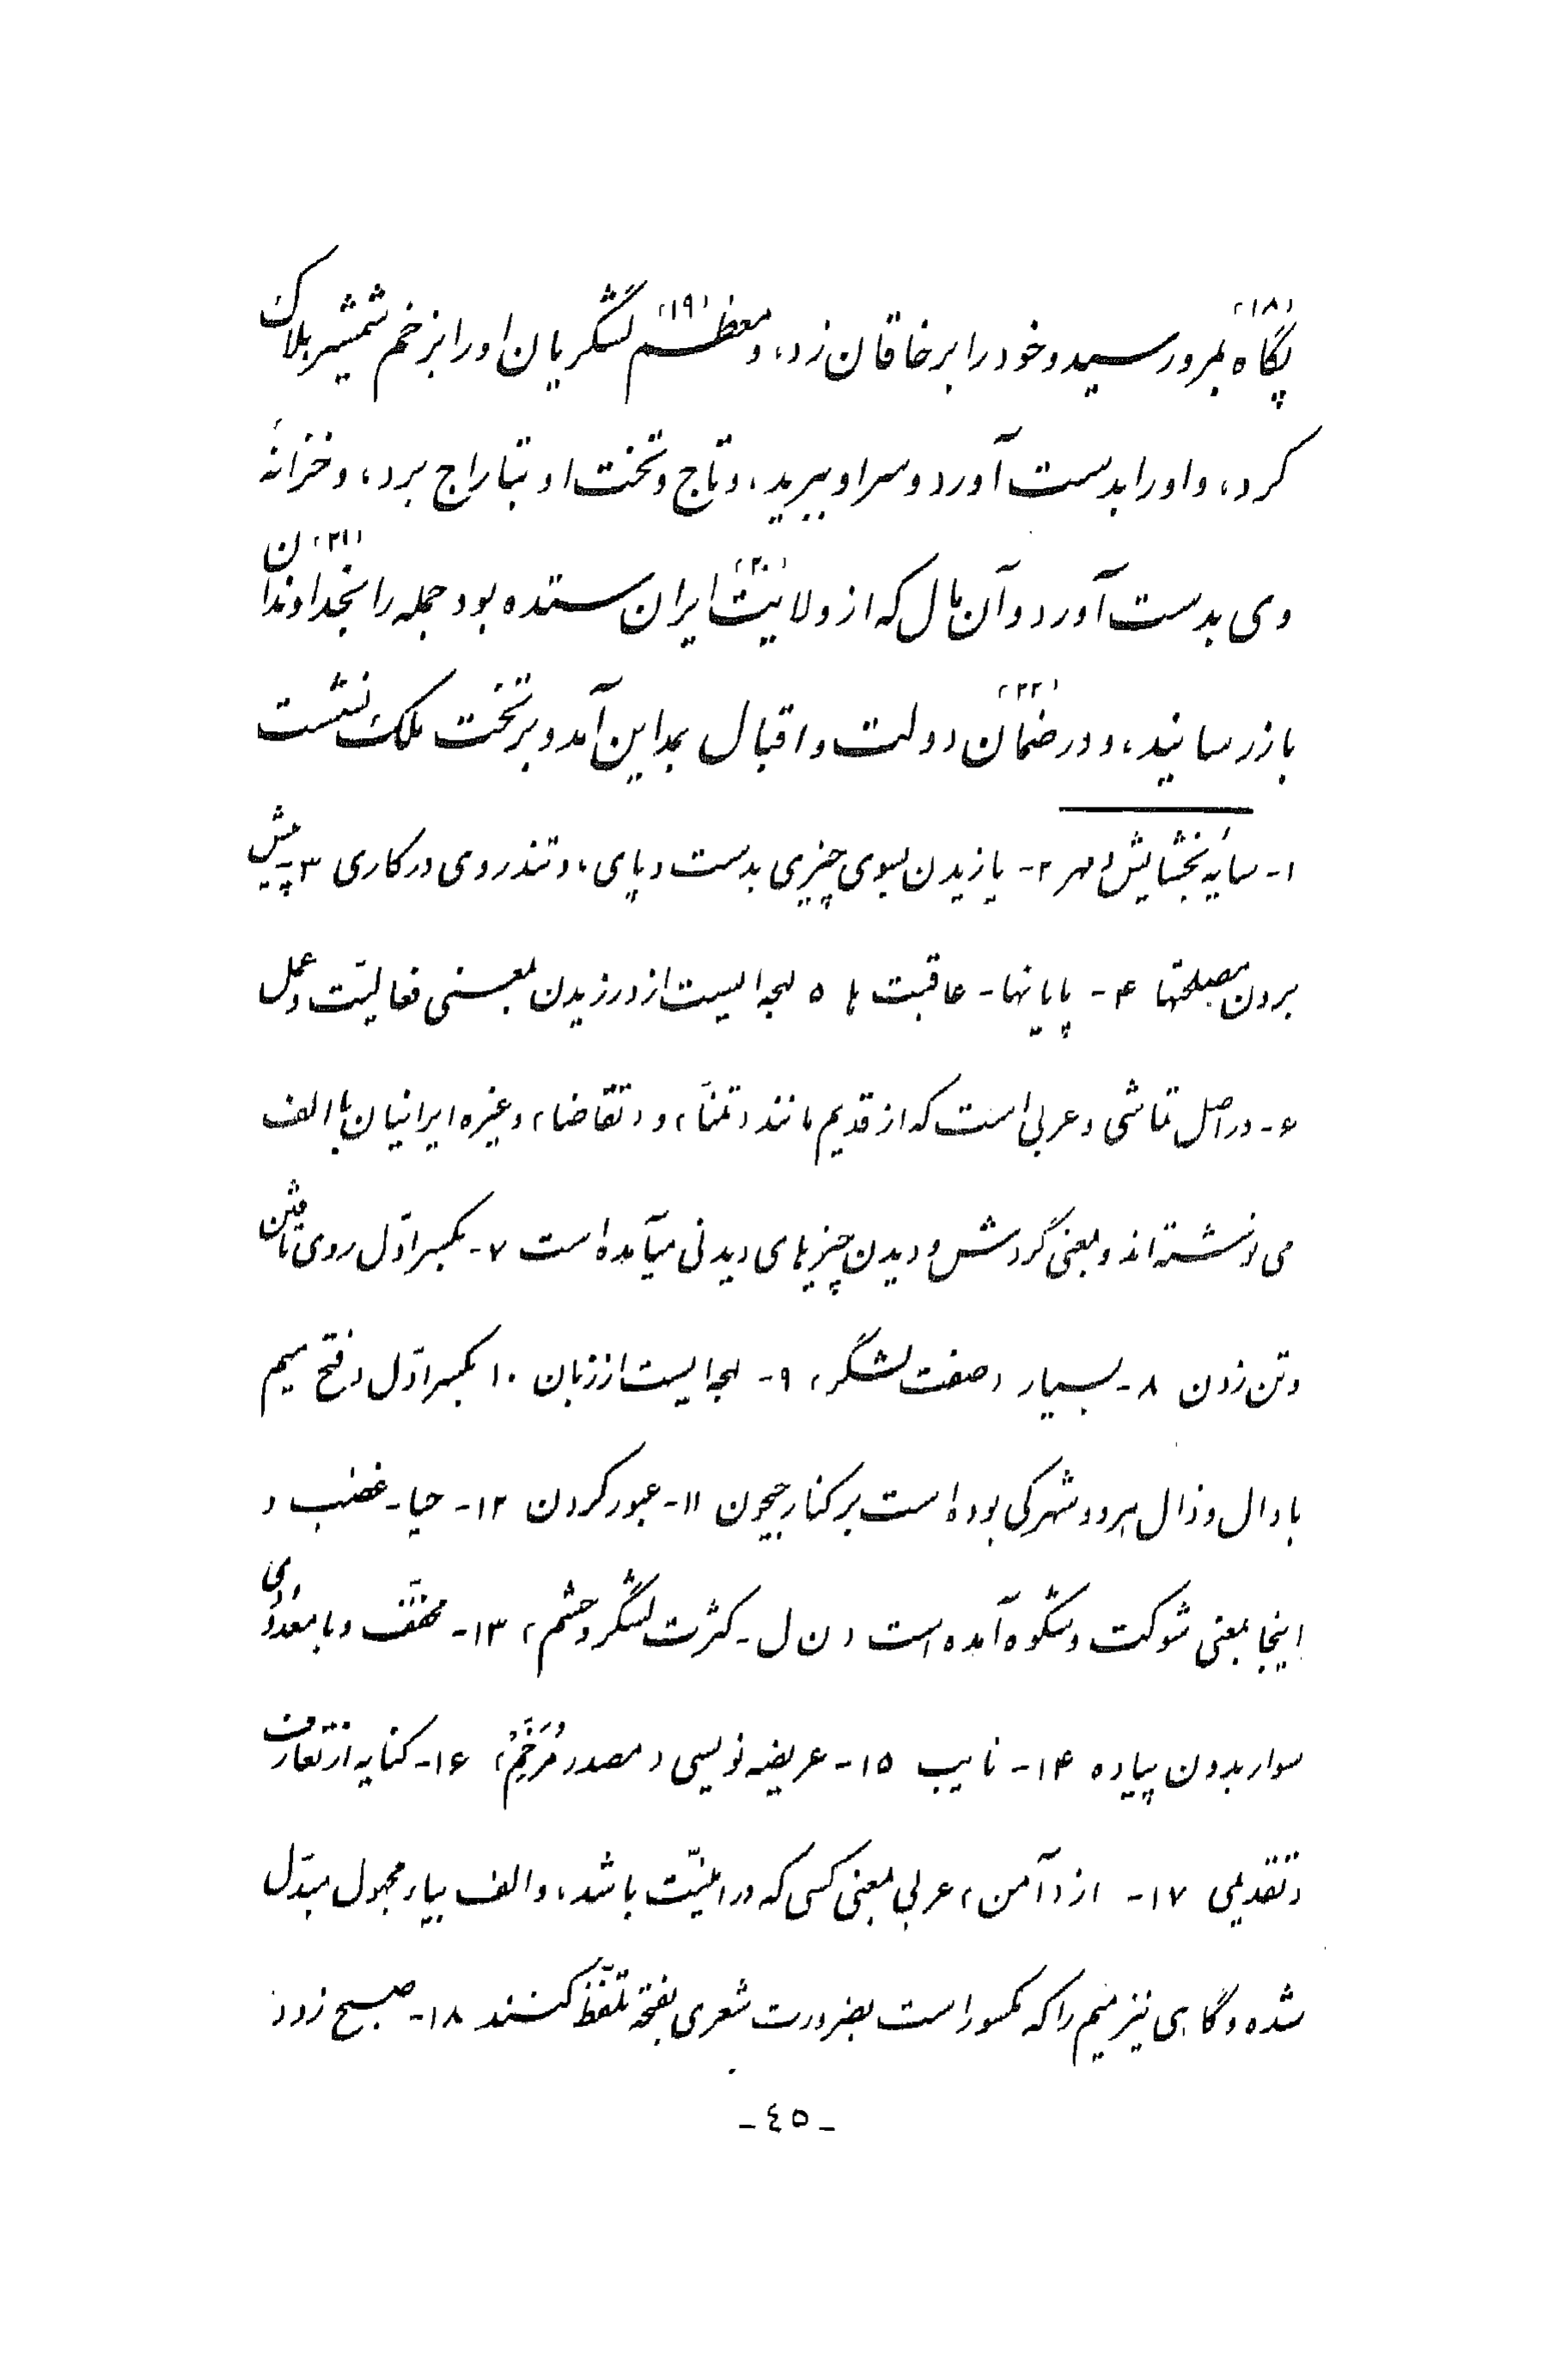 پگاه (۱۸) بمرو رسید و خود را بر خاقان زد، و معظم (۱۹) لشگریان او را بزخم شمشیر هلاک
کرد، و او را بدست آورد و سر او ببرید، و تاج و تخت او بتاراج برد، و خزانهٔ
وی بدست آورد و آن مال که از ولایت (۲۰) ایران ستده بود جمله را بخداوندان (۲۱)
باز رسانید، و در ضمان (۲۲) دولت و اقبال بمداین آمد و بر تخت ملک نشست
۱- سایهٔ بخشایش و مهر ۲- یازیدن بسوی چیزی بدست و پای، و تندروی در کاری ۳- پیش
بردن مصلحتها ۴- پایانها - عاقبت ها ۵ لهجه ایست از ورزیدن بمعنی فعالیّت و عمل
۶- در اصل تماشی و عربی است که از قدیم مانند (تمنّا) و (تقاضا) و غیره ایرانیان با الف
می نوشته اند و بمعنی گردش و دیدن چیزهای دیدنی میآمده است ۷- بکسر اوّل روی تافتن
و تن زدن ۸- بسیار (صفت لشگر) ۹- لهجه ایست از زبان ۱۰ بکسر اوّل و فتح میم
با دال و ذال هر دو شهرکی بوده است بر کنار جیحون ۱۱- عبور کردن ۱۲- حیا - غضب و
اینجا بمعنی شوکت و شکوه آمده است (ن ل - کثرت لشگر و حشم) ۱۳- مخفّف و با معدودی
سوار بدون پیاده ۱۴- نایب ۱۵- عریضه نویسی (مصدر مُرَخَّم) ۱۶- کنایه از تعارف
و تقدیمی ۱۷- از (آمن) عربی بمعنی کسی که در امنیّت باشد، و الف بیاء مجهول مبدّل
شده و گاهی نیز میم را که مکسور است بضرورت شعری بفتحه تلفّظ کنند ۱۸- صبح زود
- ٤٥ -